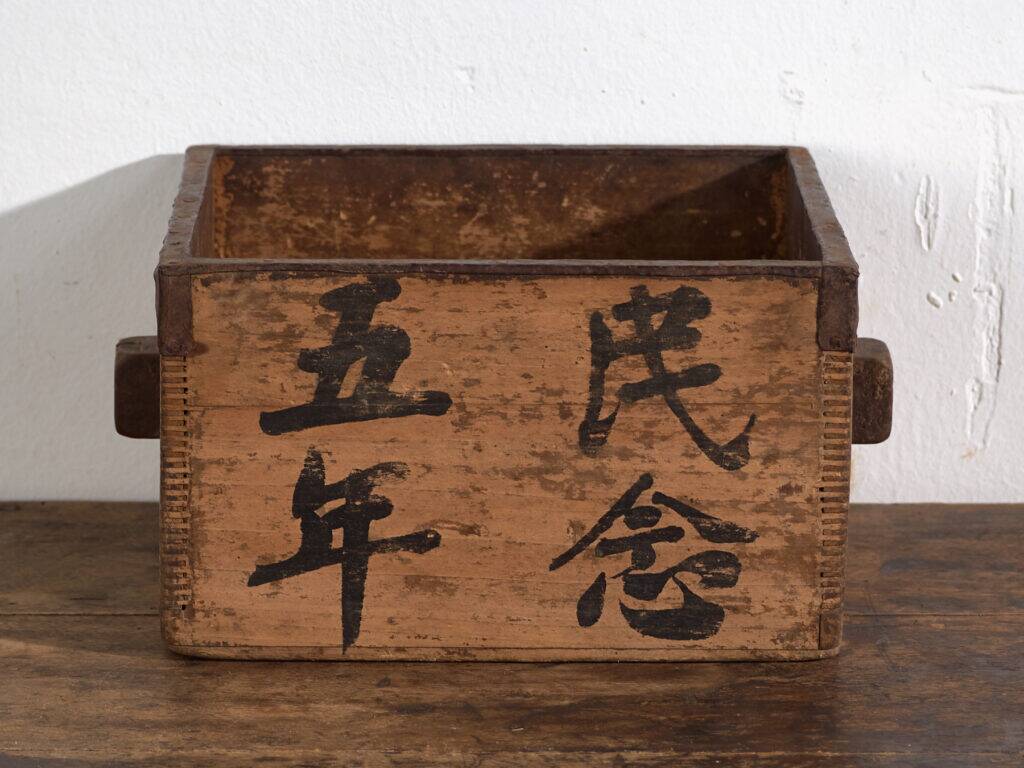 民念
五年